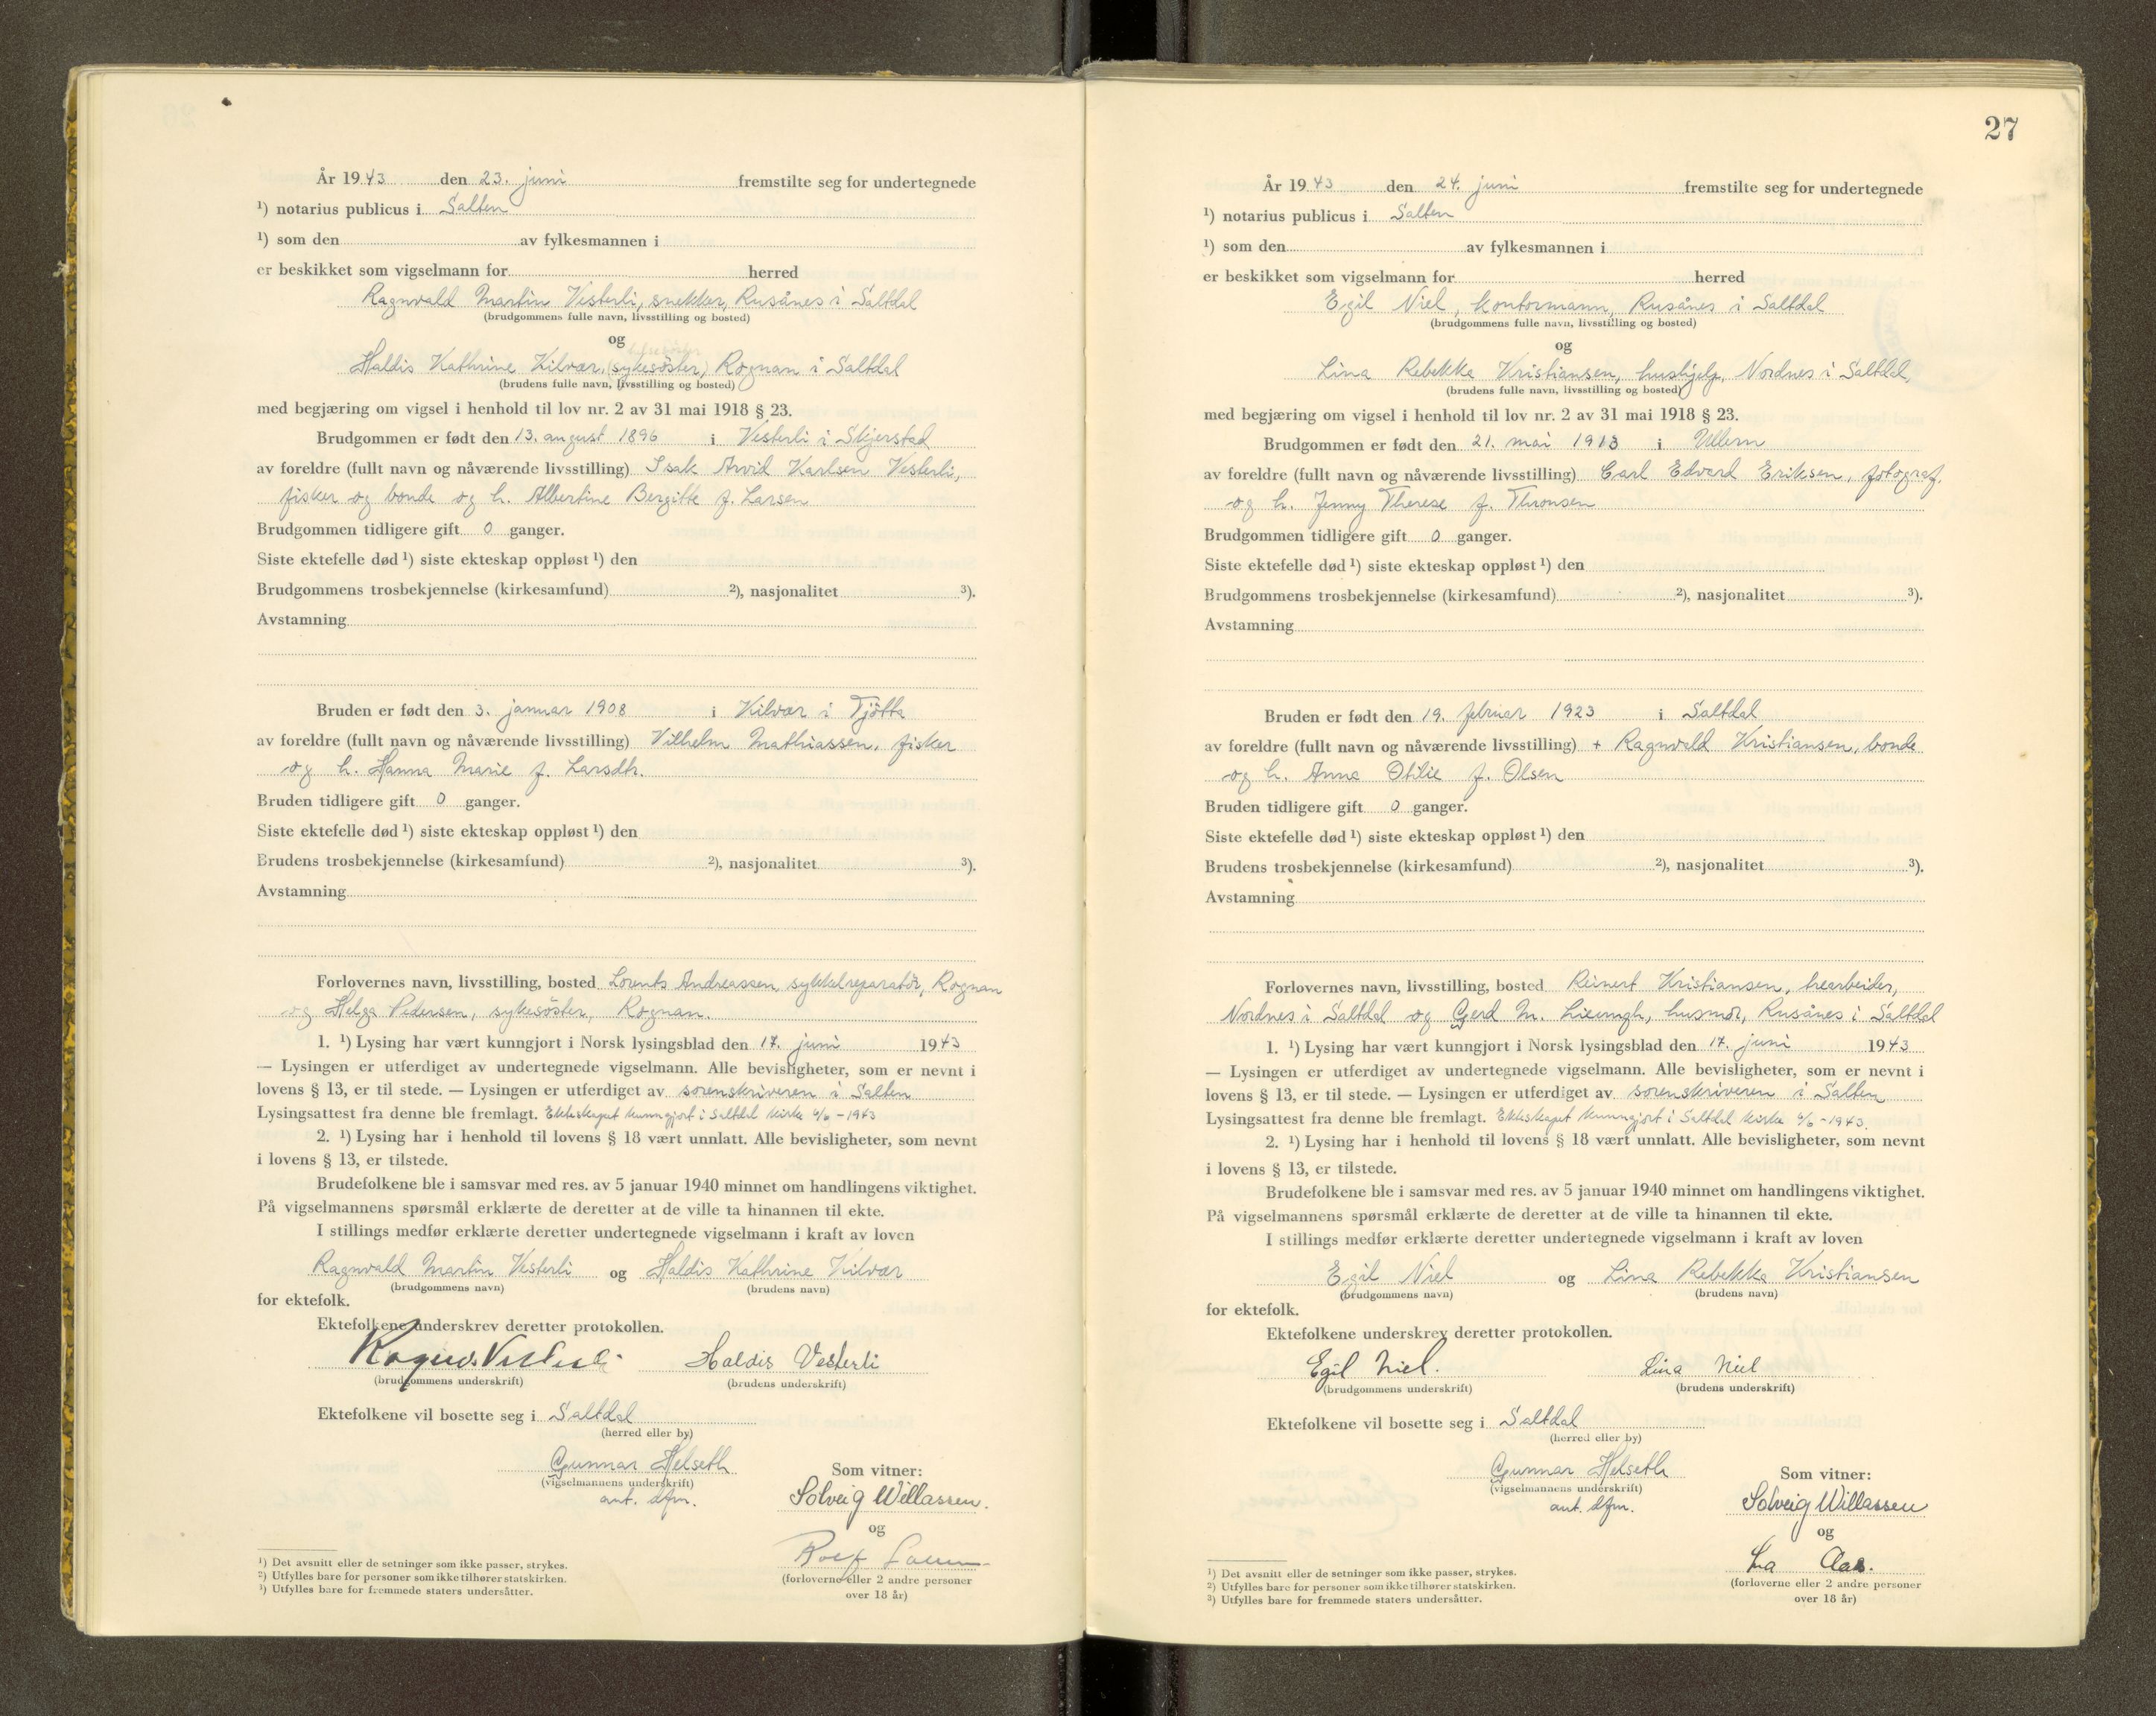 År 1943 den 23. juni fremstilte seg for undertegnede
¹) notarius publicus i Salten
¹) som den av fylkesmannen i
er beskikket som vigselmann for herred
Ragnvald Martin Vesterli, snekker, Rusånes i Saltdal
(brudgommens fulle navn, livsstilling og bosted)
og
Haldis Kathrine Kilvær, (sykesöster) Rognan i Saltdal
(brudens fulle navn, livsstilling og bosted)
med begjæring om vigsel i henhold til lov nr. 2 av 31 mai 1918 § 23.
Brudgommen er født den 13. august 1896 i Vesterli i Skjerstad
av foreldre (fullt navn og nåværende livsstilling) Isak Arvid Karlsen Vesterli,
fisker og bonde og h. Albertine Bergitte f. Larsen
Brudgommen tidligere gift 0 ganger.
Siste ektefelle død ¹) siste ekteskap oppløst ¹) den
Brudgommens trosbekjennelse (kirkesamfund) ²), nasjonalitet ³).
Avstamning
Bruden er født den 3. januar 1908 i Kilvær i Tjötta
av foreldre (fullt navn og nåværende livsstilling) Vilhelm Mathiassen, fisker
og h. Hanna Marie f. Larsdtr.
Bruden tidligere gift 0 ganger.
Siste ektefelle død ¹) siste ekteskap oppløst ¹) den
Brudens trosbekjennelse (kirkesamfund) ²), nasjonalitet ³).
Avstamning
Forlovernes navn, livsstilling, bosted Lorents Andreassen, sykkelreparatör, Rognan
og Helga Pedersen, sykesöster, Rognan.
1. ¹) Lysing har vært kunngjort i Norsk lysingsblad den 17. juni 1943
— Lysingen er utferdiget av undertegnede vigselmann. Alle bevisligheter, som er nevnt i
lovens § 13, er til stede. — Lysingen er utferdiget av sorenskriveren i Salten
Lysingsattest fra denne ble fremlagt. Ekteskapet kunngjort i Saltdal kirke 6/6 - 1943
2. ¹) Lysing har i henhold til lovens § 18 vært unnlatt. Alle bevisligheter, som nevnt
i lovens § 13, er tilstede.
Brudefolkene ble i samsvar med res. av 5 januar 1940 minnet om handlingens viktighet.
På vigselmannens spørsmål erklærte de deretter at de ville ta hinannen til ekte.
I stillings medfør erklærte deretter undertegnede vigselmann i kraft av loven
Ragnvald Martin Vesterli og Haldis Kathrine Kilvær
(brudgommens navn) (brudens navn)
for ektefolk.
Ektefolkene underskrev deretter protokollen.
Ragnv. Vesterli Haldis Vesterli
(brudgommens underskrift) (brudens underskrift)
Ektefolkene vil bosette seg i Saltdal
(herred eller by)
Gunnar Helseth
(vigselmannens underskrift)
aut. dfm.
Som vitner:
Solveig Willassen.
og
Rolf
(forloverne eller 2 andre personer
over 18 år)
¹) Det avsnitt eller de setninger som ikke passer, strykes.
²) Utfylles bare for personer som ikke tilhører statskirken.
³) Utfylles bare for fremmede staters undersåtter.
27
År 1943 den 24. juni fremstilte seg for undertegnede
¹) notarius publicus i Salten
¹) som den av fylkesmannen i
er beskikket som vigselmann for herred
Egil Niel, kontormann, Rusånes i Saltdal
(brudgommens fulle navn, livsstilling og bosted)
og
Lina Rebekka Kristiansen, hushjelp, Nordnes i Saltdal,
(brudens fulle navn, livsstilling og bosted)
med begjæring om vigsel i henhold til lov nr. 2 av 31 mai 1918 § 23.
Brudgommen er født den 21. mai 1913 i Ullern
av foreldre (fullt navn og nåværende livsstilling) Carl Edvard Eriksen, fotograf,
og h. Jenny Therese f. Thronsen
Brudgommen tidligere gift 0 ganger.
Siste ektefelle død ¹) siste ekteskap oppløst ¹) den
Brudgommens trosbekjennelse (kirkesamfund) ²), nasjonalitet ³).
Avstamning
Bruden er født den 19. februar 1923 i Saltdal
av foreldre (fullt navn og nåværende livsstilling) + Ragnvald Kristiansen, bonde
og h. Anna Otilie f. Olsen
Bruden tidligere gift 0 ganger.
Siste ektefelle død ¹) siste ekteskap oppløst ¹) den
Brudens trosbekjennelse (kirkesamfund) ²), nasjonalitet ³).
Avstamning
Forlovernes navn, livsstilling, bosted Reinert Kristiansen, trearbeider,
Nordnes i Saltdal og Gerd M. husmor, Rusånes i Saltdal
1. ¹) Lysing har vært kunngjort i Norsk lysingsblad den 17. juni 1943
— Lysingen er utferdiget av undertegnede vigselmann. Alle bevisligheter, som er nevnt i
lovens § 13, er til stede. — Lysingen er utferdiget av sorenskriveren i Salten
Lysingsattest fra denne ble fremlagt. Ekteskapet kunngjort i Saltdal kirke 6/6 - 1943.
2. ¹) Lysing har i henhold til lovens § 18 vært unnlatt. Alle bevisligheter, som nevnt
i lovens § 13, er tilstede.
Brudefolkene ble i samsvar med res. av 5 januar 1940 minnet om handlingens viktighet.
På vigselmannens spørsmål erklærte de deretter at de ville ta hinannen til ekte.
I stillings medfør erklærte deretter undertegnede vigselmann i kraft av loven
Egil Niel og Lina Rebekka Kristiansen
(brudgommens navn) (brudens navn)
for ektefolk.
Ektefolkene underskrev deretter protokollen.
Egil Niel. Lina Niel
(brudgommens underskrift) (brudens underskrift)
Ektefolkene vil bosette seg i Saltdal
(herred eller by)
Gunnar Helseth
(vigselmannens underskrift)
aut. dfm.
Som vitner:
Solveig Willassen
og
Aas.
(forloverne eller 2 andre personer
over 18 år)
¹) Det avsnitt eller de setninger som ikke passer, strykes.
²) Utfylles bare for personer som ikke tilhører statskirken.
³) Utfylles bare for fremmede staters undersåtter.